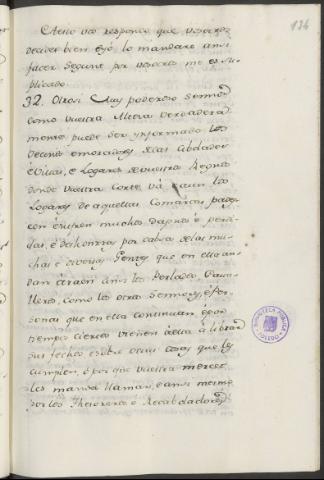 136
A esto vos respondo que vosotros
decides bien e yo lo mandaré ansi
facer segunt por vosotros me es su
plicado.
32. Otrosi Muy poderoso Sennor
como vuestra Alteza verdadera
mente puede ser ynformado los
vecinos e moradores de las cibdades
e Villas, e Logares de vuestros Regnos
donde vuestra Corte vá e a en los
Logares de aquellas Comarcas, pades
cen e sufren muchos dapnos e perdi
das, e deshonrras por cabsa de las mu
chas e diversas Gentes que en ella an
dan é
ansi los Perlados Caua
lleros, como los otros Sennores, é Per
sonas que en ella continuan, e por
tiempos ciertos vienen á ella á librar
sus fechos e sobre otras cosas que les
cumplen, é por que vuestra merced
les manda llamar, e ansi mesmo
por los Thesoreros é Recabdadores
BIBLIOTECA PUBLICA
TOLEDO